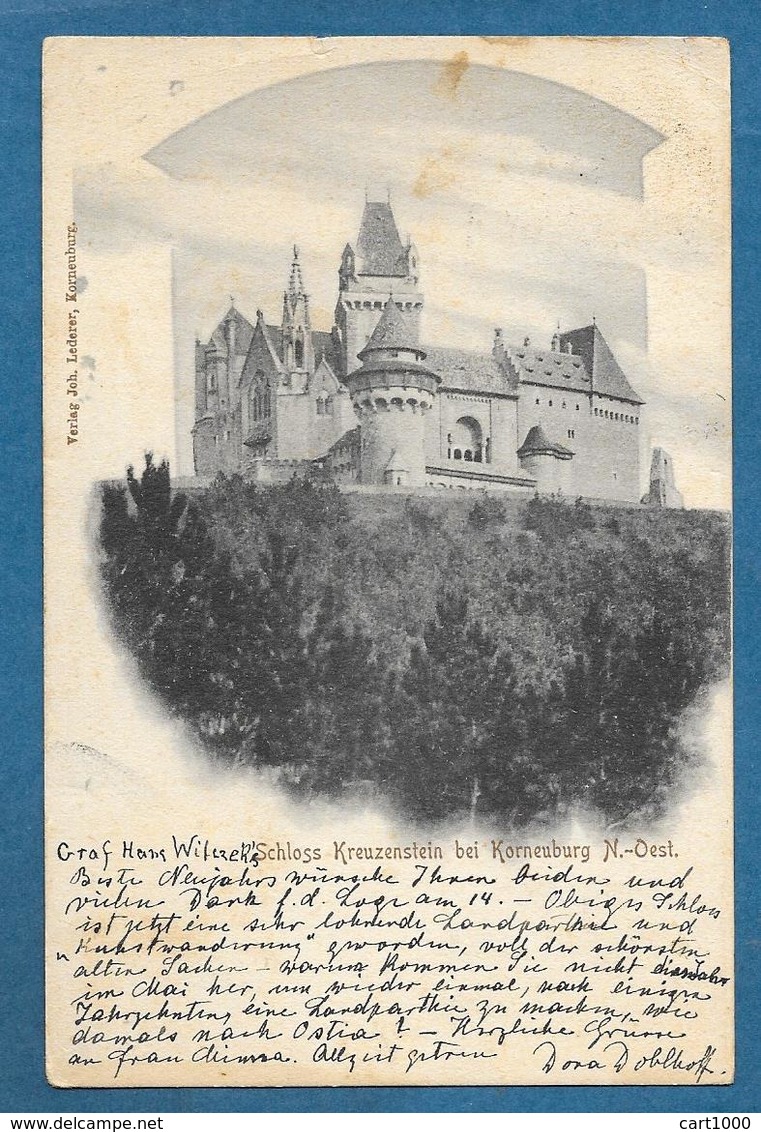 Verlag Joh. Lederer, Korneuburg.
Graf Hans Wilczek's Schloss Kreuzenstein bei Korneuburg N.-Oest.
Beste Neujahrswünsche Ihnen beiden und
vielen Dank f. d. Loge am 14. – Obiges Schloss
ist jetzt eine sehr lohnende Landparthie und
"Kunstwanderung" geworden, voll der schönsten
alten Sachen – warum kommen Sie nicht
im Mai her, um wieder einmal, nach einigen
Jahrzehnten eine Landparthie zu machen, wie
damals nach Ostia? – Herzliche Grüsse
an Frau Minna. Allzeit getreu Dora Doblhoff.
cart1000